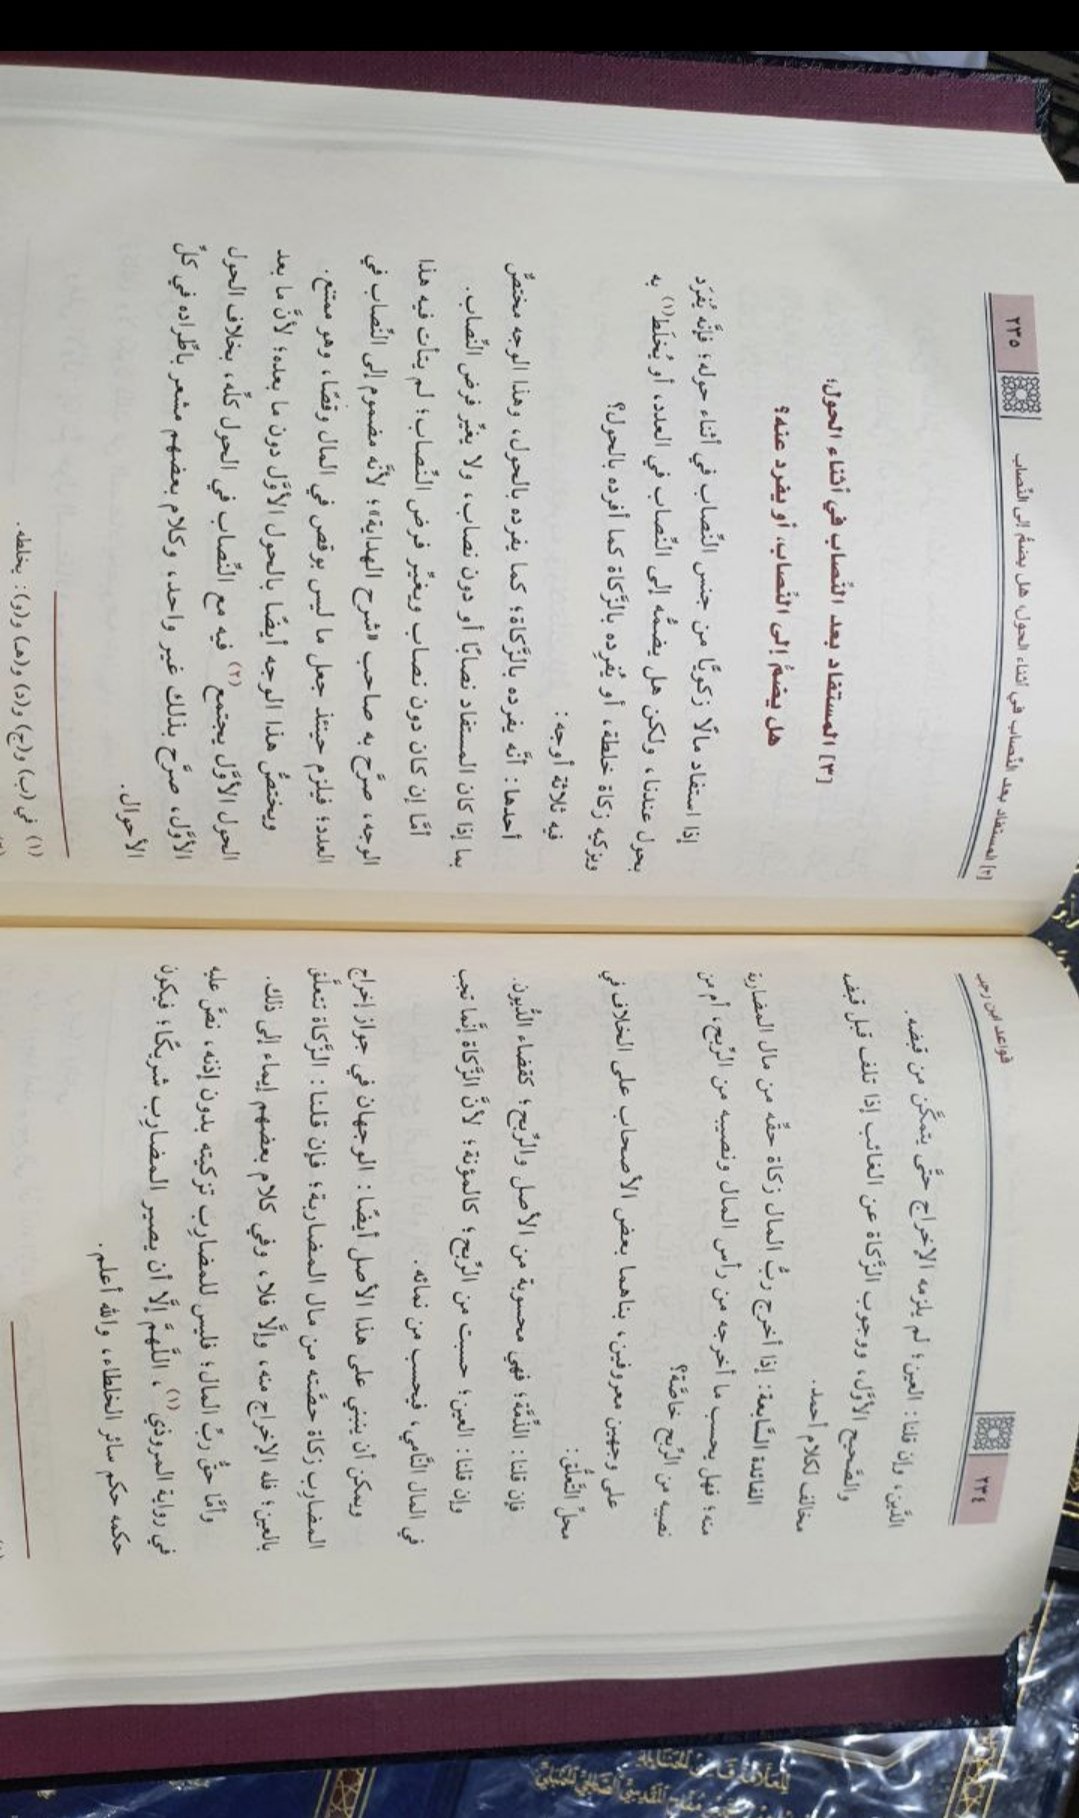 قواعد ابن رجب
٢٣٤
الدَّين، وإن قلنا: العين؛ لم يلزمه الإخراج حتَّى يتمكَّن من قبضه.
والصَّحيح الأوَّل، ووجوب الزَّكاة عن الغائب إذا تلف قبل قبضه
مخالف لكلام أحمد.
الفائدة السَّابعة: إذا أخرج ربُّ المال زكاة حقِّه من مال المضاربة
منه؛ فهل يحسب ما أخرجه من رأس المال ونصيبه من الرِّبح، أم من
نصيبه من الرِّبح خاصَّة؟
على وجهين معروفين، بناهما بعض الأصحاب على الخلاف في
محلِّ التَّعلُّق:
فإن قلنا: الذِّمَّة؛ فهي محسوبة من الأصل والرِّبح؛ كقضاء الدُّيون.
وإن قلنا: العين؛ حسبت من الرِّبح؛ كالمؤنة؛ لأنَّ الزَّكاة إنَّما تجب
في المال النَّامي، فيحسب من نمائه.
ويمكن أن ينبني على هذا الأصل أيضًا: الوجهان في جواز إخراج
المضارِب زكاة حصَّته من مال المضاربة؛ فإن قلنا: الزَّكاة تتعلَّق
بالعين؛ فله الإخراج منه، وإلَّا فلا، وفي كلام بعضهم إيماء إلى ذلك.
وأمَّا حقُّ ربِّ المال؛ فليس للمضارِب تزكيته بدون إذنه، نصَّ عليه
في رواية المروذي(١)، اللَّهمَّ إلَّا أن يصير المضارِب شريكًا؛ فيكون
حكمه حكم سائر الخلطاء، والله أعلم.
[٣] المستفاد بعد النِّصاب في أثناء الحول، هل يضمُّ إلى النِّصاب
٢٣٥
[٣] المستفاد بعد النِّصاب في أثناء الحول؛
هل يضمُّ إلى النِّصاب، أو يفرد عنه؟
إذا استفاد مالًا زكويًّا من جنس النِّصاب في أثناء حوله؛ فإنَّه يُفرَد
بحول عندنا، ولكن هل يضمُّه إلى النِّصاب في العدد، أو يُخلَط(١) به
ويزكيه زكاة خلطة، أو يُفرِده بالزَّكاة كما أفرده بالحول؟
فيه ثلاثة أوجه:
أحدها: أنَّه يفرده بالزَّكاة؛ كما يفرده بالحول، وهذا الوجه مختصٌّ
بما إذا كان المستفاد نصابًا أو دون نصاب، ولا يغيِّر فرض النِّصاب.
أمَّا إن كان دون نصاب ويغيِّر فرض النِّصاب؛ لم يتأت فيه هذا
الوجه، صرَّح به صاحب «شرح الهداية»؛ لأنَّه مضموم إلى النِّصاب في
العدد؛ فيلزم حينئذ جعل ما ليس بوقص في المال وقصًا، وهو ممتنع.
ويختصُّ هذا الوجه أيضًا بالحول الأوَّل دون ما بعده؛ لأنَّ ما بعد
الحول الأوَّل يجتمع(٢) فيه مع النِّصاب في الحول كلِّه، بخلاف الحول
الأوَّل، صرَّح بذلك غير واحد، وكلام بعضهم مشعر باطِّراده في كلِّ
الأحوال.
(١) في (ب) و(ج) و(د) و(هـ) و(و): يخلطه.